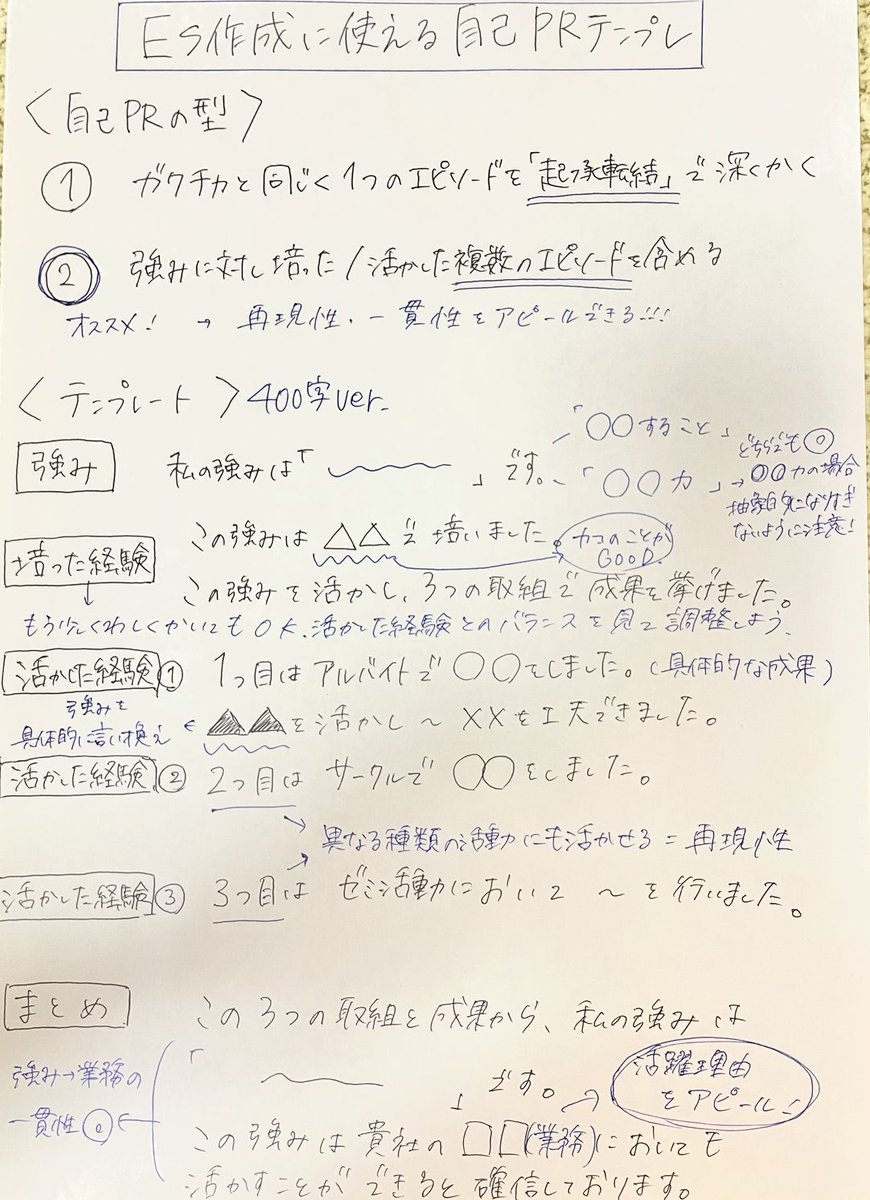 ES作成に使える自己PRテンプレ
〈自己PRの型〉
① ガクチカと同じく1つのエピソードを「起承転結」で深くかく
② 強みに対し培った/活かした複数のエピソードを含める
オススメ! → 再現性・一貫性をアピールできる!!!
〈テンプレート〉400字ver.
強み 私の強みは「 」です。
「○○すること」
「○○力」
どちらでも◎
→○○力の場合
抽象的になりすぎ
ないように注意!
培った経験 この強みは△△で培いました。
カコのことが
GOOD.
この強みを活かし、3つの取組で成果を挙げました。
↓
もう少しくわしくかいてもOK、活かした経験とのバランスを見て調整しよう、
活かした経験① 1つ目はアルバイトで○○をしました。(具体的な成果)
強みを
具体的に言い換え ← ▲▲を活かし～××を工夫できました。
活かした経験② 2つ目はサークルで○○をしました。
異なる種類の活動にも活かせる=再現性
活かした経験③ 3つ目はゼミ活動において～を行いました。
まとめ この3つの取組と成果から、私の強みは
「 」です。
→ 活躍理由
をアピール!
強み→業務の
一貫性◎←
この強みは貴社の□□(業務)においても
活かすことができると確信しております。